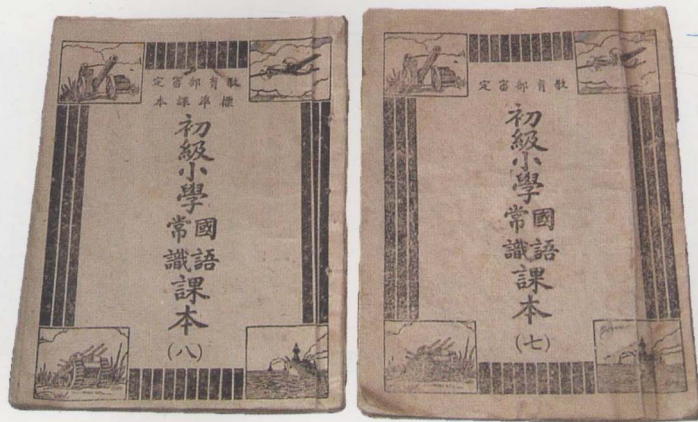 教育部審定
標準課本
初級小學國語常識課本
(八)
教育部審定
初級小學國語常識課本
(七)